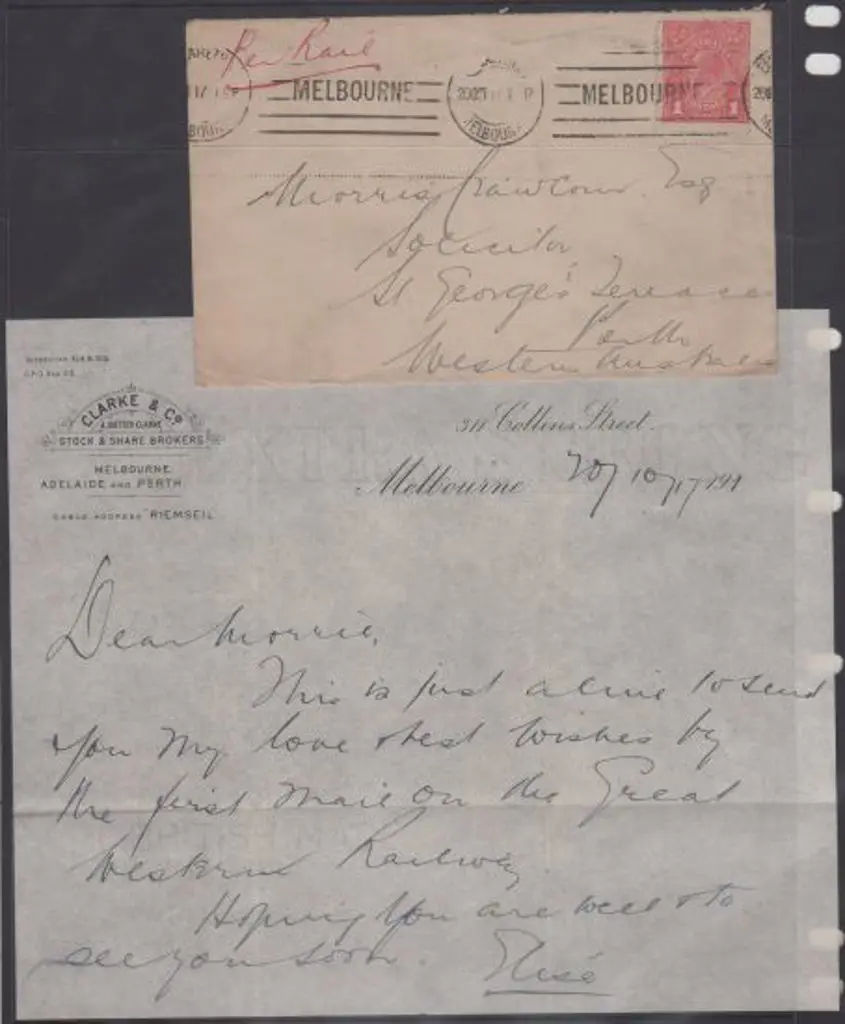 Per Rail
MELBOURNE
MELBOURNE
1 1
Morris Crawcour. Esq
Solicitor
St George's Terrace
Perth
Western Australia
G.P.O. Box
CLARKE & Co
STOCK & SHARE BROKERS
MELBOURNE
ADELAIDE AND PERTH
CABLE ADDRESS "RIEMSEIL
Collins Street.
Melbourne 20/10/17 191
Dear Morrie,
This is just a line to send
you my love & best wishes by
the first mail on the Great
Western Railway
Hoping you are well & to
see you soon. Elise